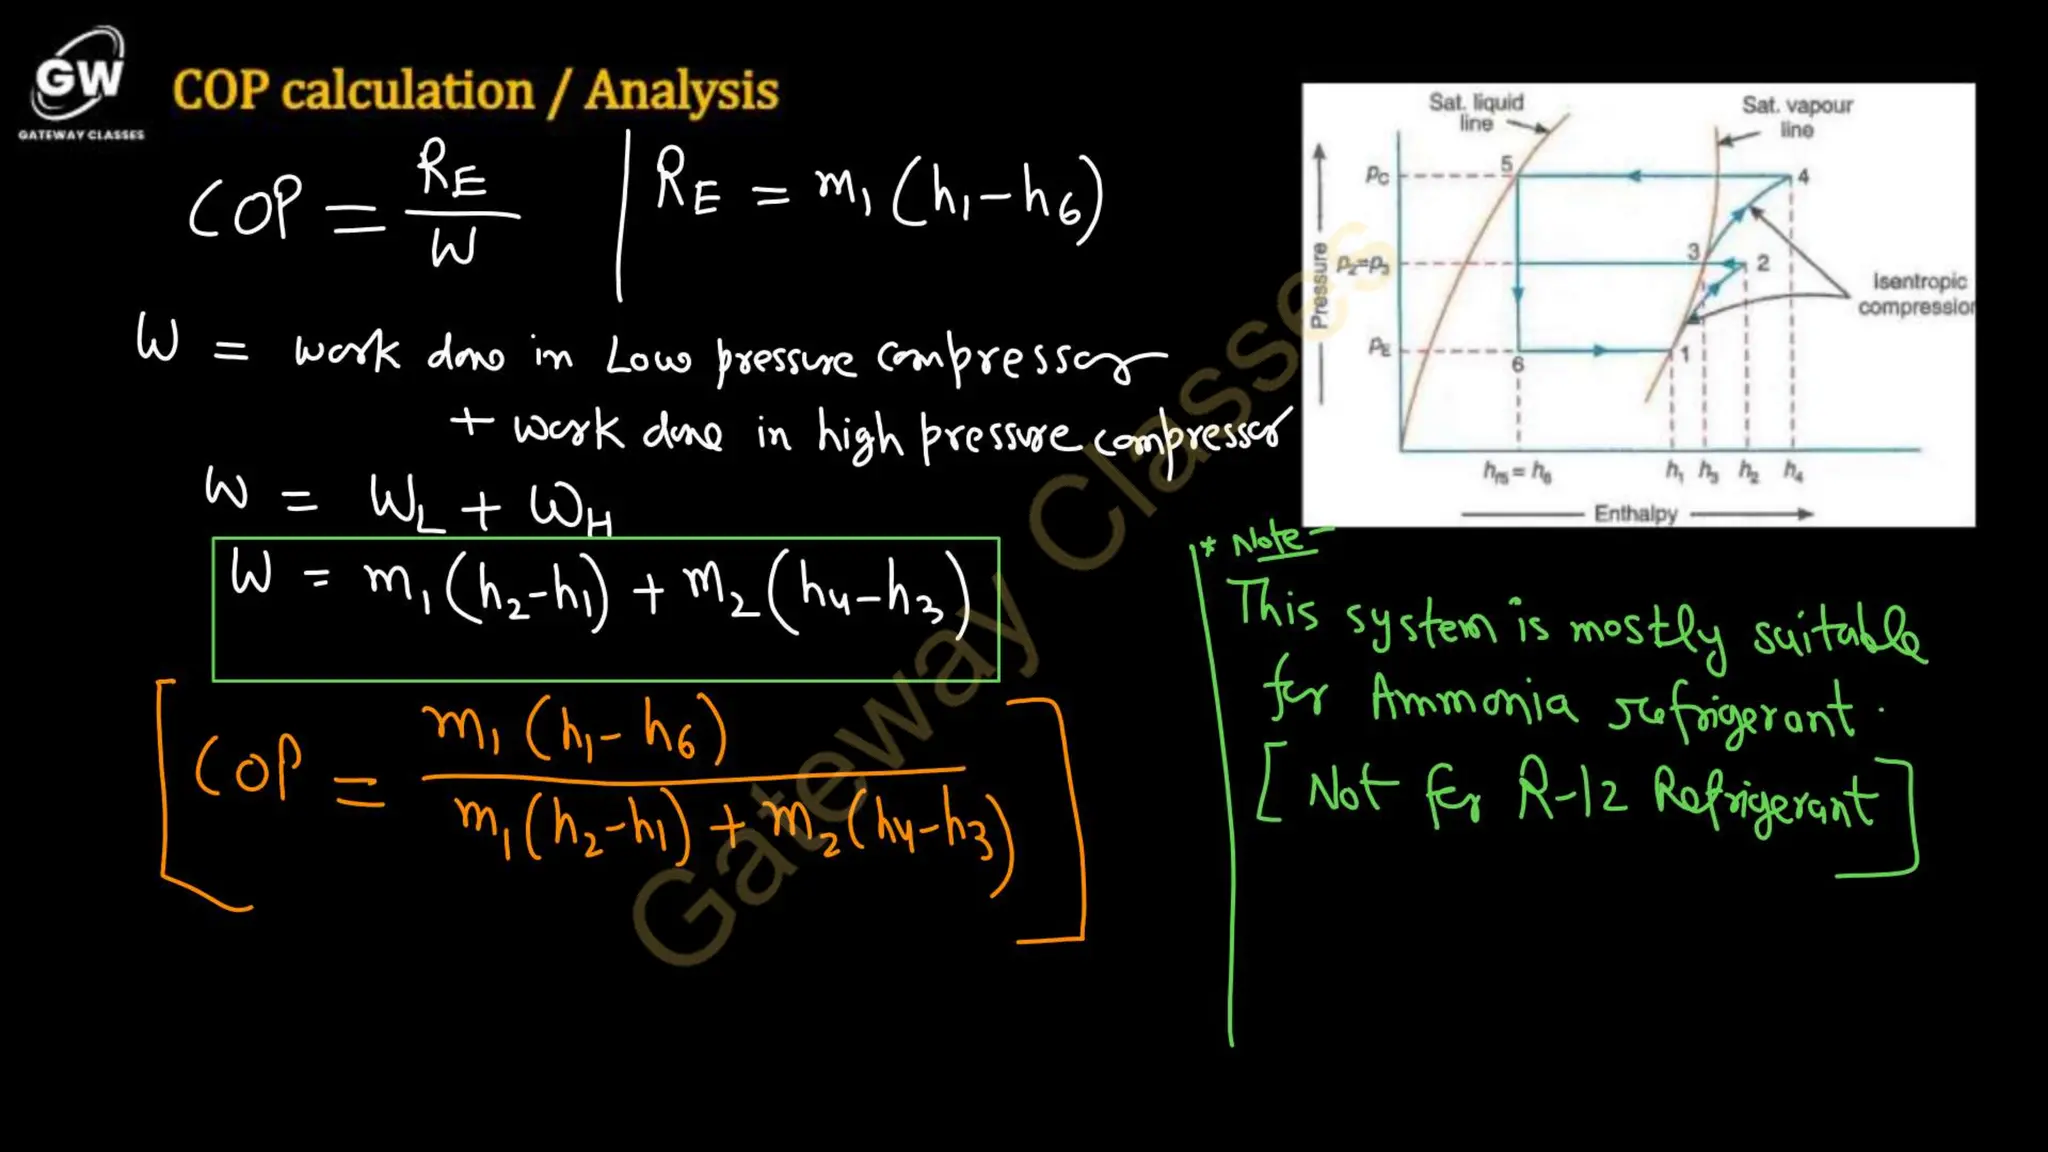 GW
GATEWAY CLASSES
COP calculation / Analysis
COP = RE / W
RE = m1 (h1 - h6)
W = work done in Low pressure compressor
+ work done in high pressure compressor
W = WL + WH
W = m1 (h2-h1) + m2 (h4-h3)
COP = m1 (h1 - h6) / m1 (h2-h1) + m2 (h4-h3)
Sat. liquid
line
Sat. vapour
line
Pressure
pC
p2=p3
pE
5
4
3
2
6
1
Isentropic
compression
hf5 = h6
h1
h3
h2
h4
Enthalpy
* Note -
This system is mostly suitable
for Ammonia refrigerant.
[Not for R-12 Refrigerant]
Gateway Classes